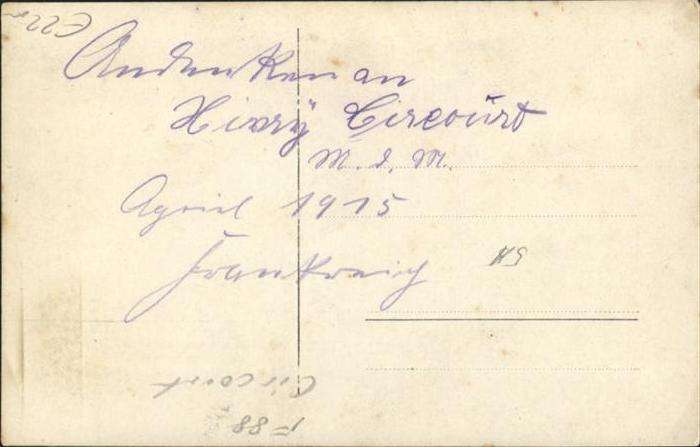 Andenken an
Xivry Circourt
M. d. M.
April 1915
Frankreich
Circourt
F 88